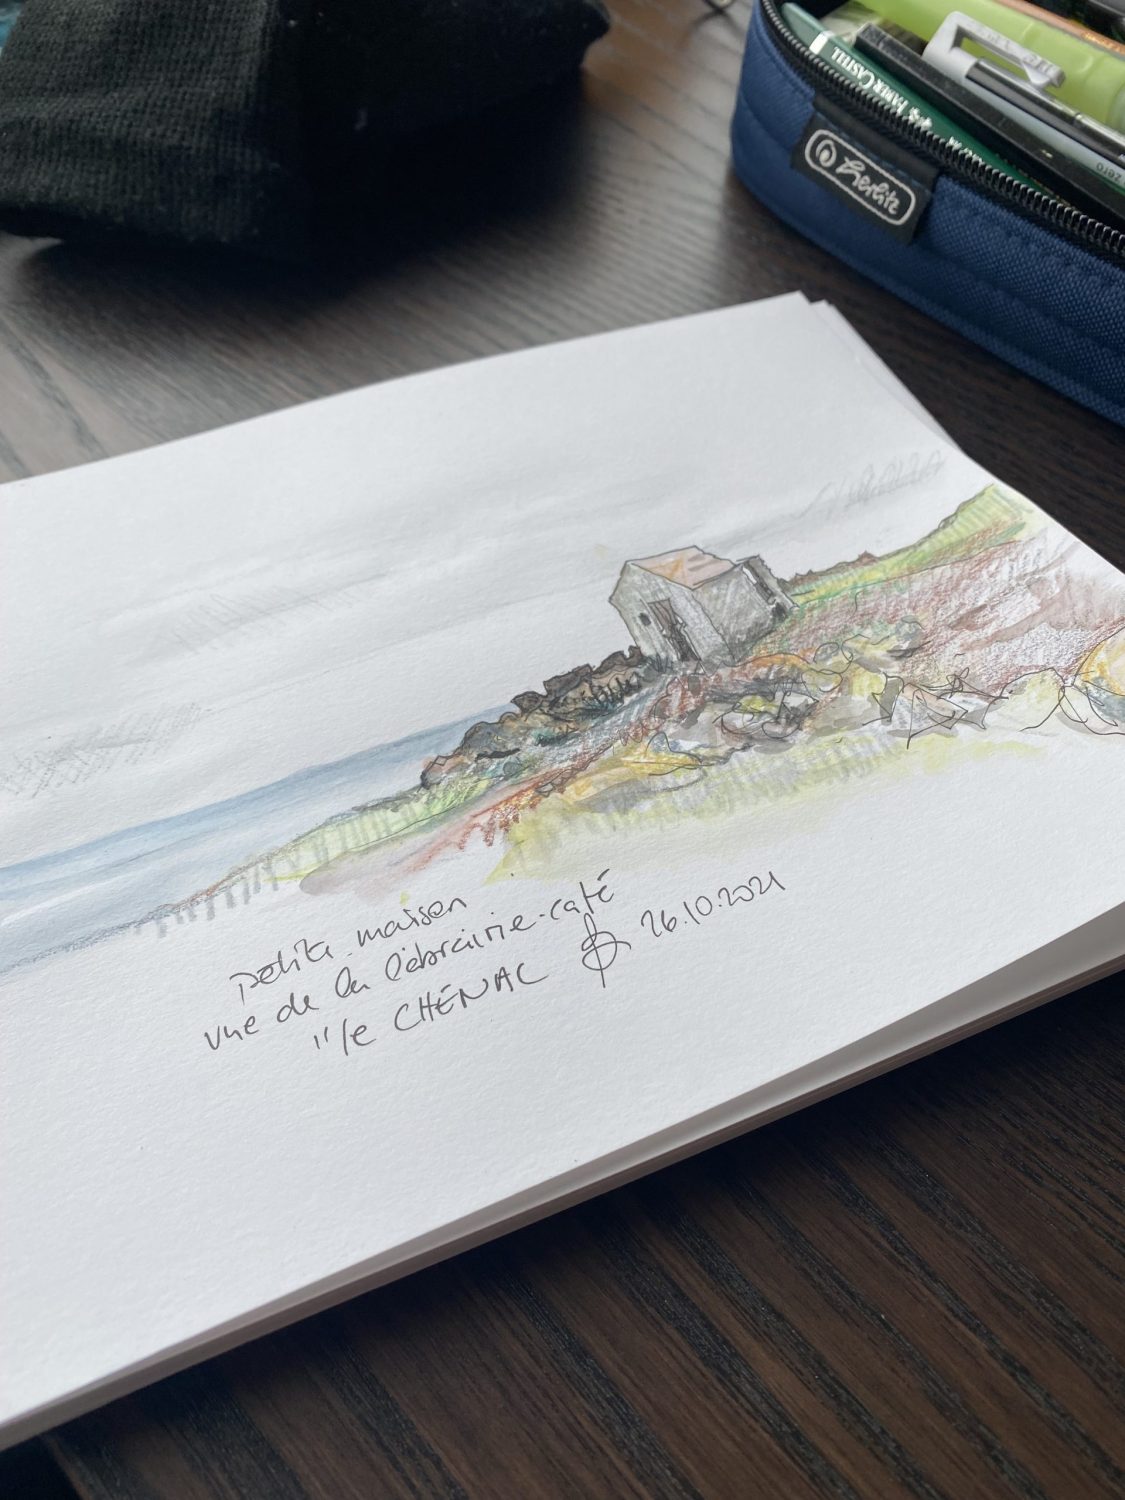 FABER CASTELL
Herlitz
0197
petite maison
vue de la librairie-café
"le CHÉNAC 26.10.2021